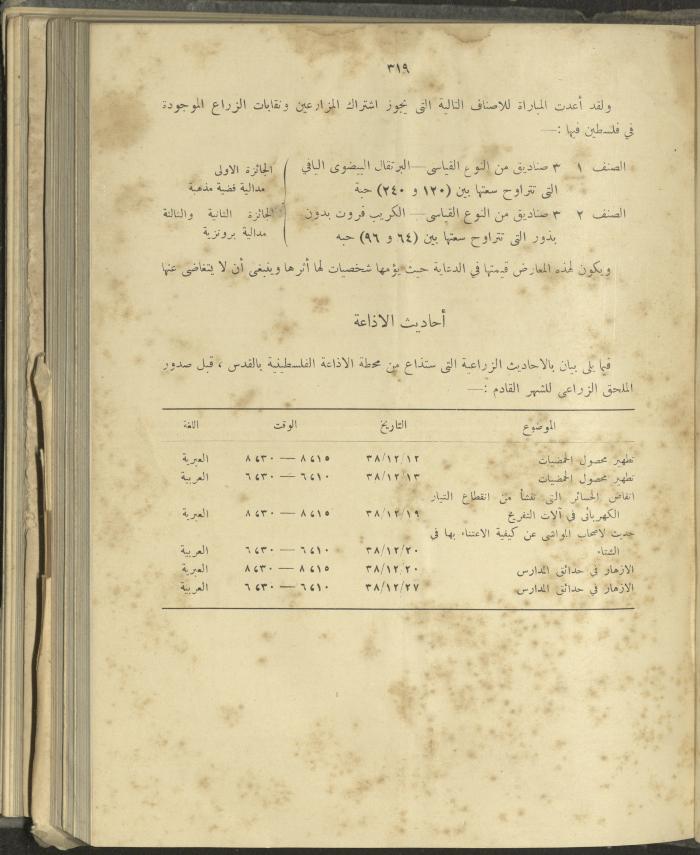 ٣١٩
ولقد أعدت المباراة للاصناف التالية التى يجوز اشتراك المزارعين ونقابات الزراع الموجودة
فى فلسطين فيها :—
الصنف ١ ٣ صناديق من النوع القياسى—البرتقال البيضوى اليافي
التى تتراوح سعتها بين (١٢٠ و ٢٤٠) حبة
الجائزة الاولى
مدالية فضية مذهبة
الصنف ٢ ٣ صناديق من النوع القياسى— الكريب فروت بدون
بذور التى تتراوح سعتها بين (٦٤ و ٩٦) حبه
الجائزة الثانية والثالثة
مدالية برونزية
ويكون لهذه المعارض قيمتها في الدعاية حيث يؤمها شخصيات لها أثرها وينبغى أن لا يتغاضى عنها
أحاديث الاذاعة
فيما يلى بيان بالاحاديث الزراعية التى ستذاع من محطة الاذاعة الفلسطينية بالقدس ، قبل صدور
الملحق الزراعي للشهر القادم :—
الموضوع التاريخ الوقت اللغة
تطهير محصول الحمضيات ٣٨/١٢/١٢ ٨،١٥ — ٨،٣٠ العبرية
تطهير محصول الحمضيات ٣٨/١٢/١٣ ٦،١٠ — ٦،٣٠ العربية
انقاض الخسائر التى تنشأ من انقطاع التيار
الكهربائى في آلات التفريخ ٣٨/١٢/١٩ ٨،١٥ — ٨،٣٠ العبرية
حديث لاصحاب المواشى عن كيفية الاعتناء بها فى
الشتاء ٣٨/١٢/٢٠ ٦،١٠ — ٦،٣٠ العربية
الازهار في حدائق المدارس ٣٨/١٢/٢٠ ٨،١٥ — ٨،٣٠ العبرية
الازهار في حدائق المدارس ٣٨/١٢/٢٧ ٦،١٠ — ٦،٣٠ العربية